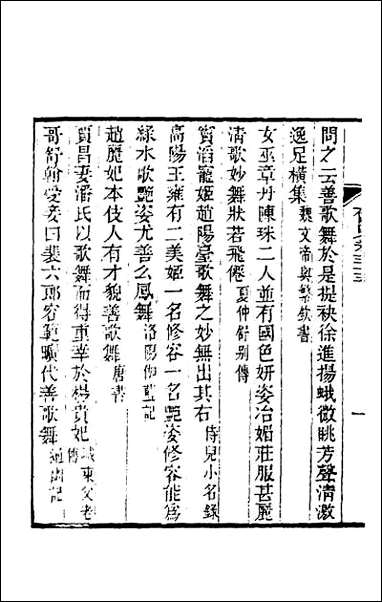 問之云善歌舞於是提袂徐進揚蛾微眺芳聲清激
逸足橫集魏文帝與繁欽書
女巫章丹陳珠二人並有國色妍姿冶媚莊服甚麗
清歌妙舞狀若飛僊夏仲舒別傳
竇滔寵姬趙陽臺歌舞之妙無出其右侍兒小名錄
高陽王雍有二美姬一名修容一名艷姿修容能爲
綠水歌艷姿尤善么鳳舞洛陽伽藍記
趙麗妃本伎人有才貌善歌舞唐書
賈昌妻潘氏以歌舞而得重幸於楊貴妃城東父老傳
哥舒翰愛妾曰裴六郎容範曠代善歌舞通幽記
一